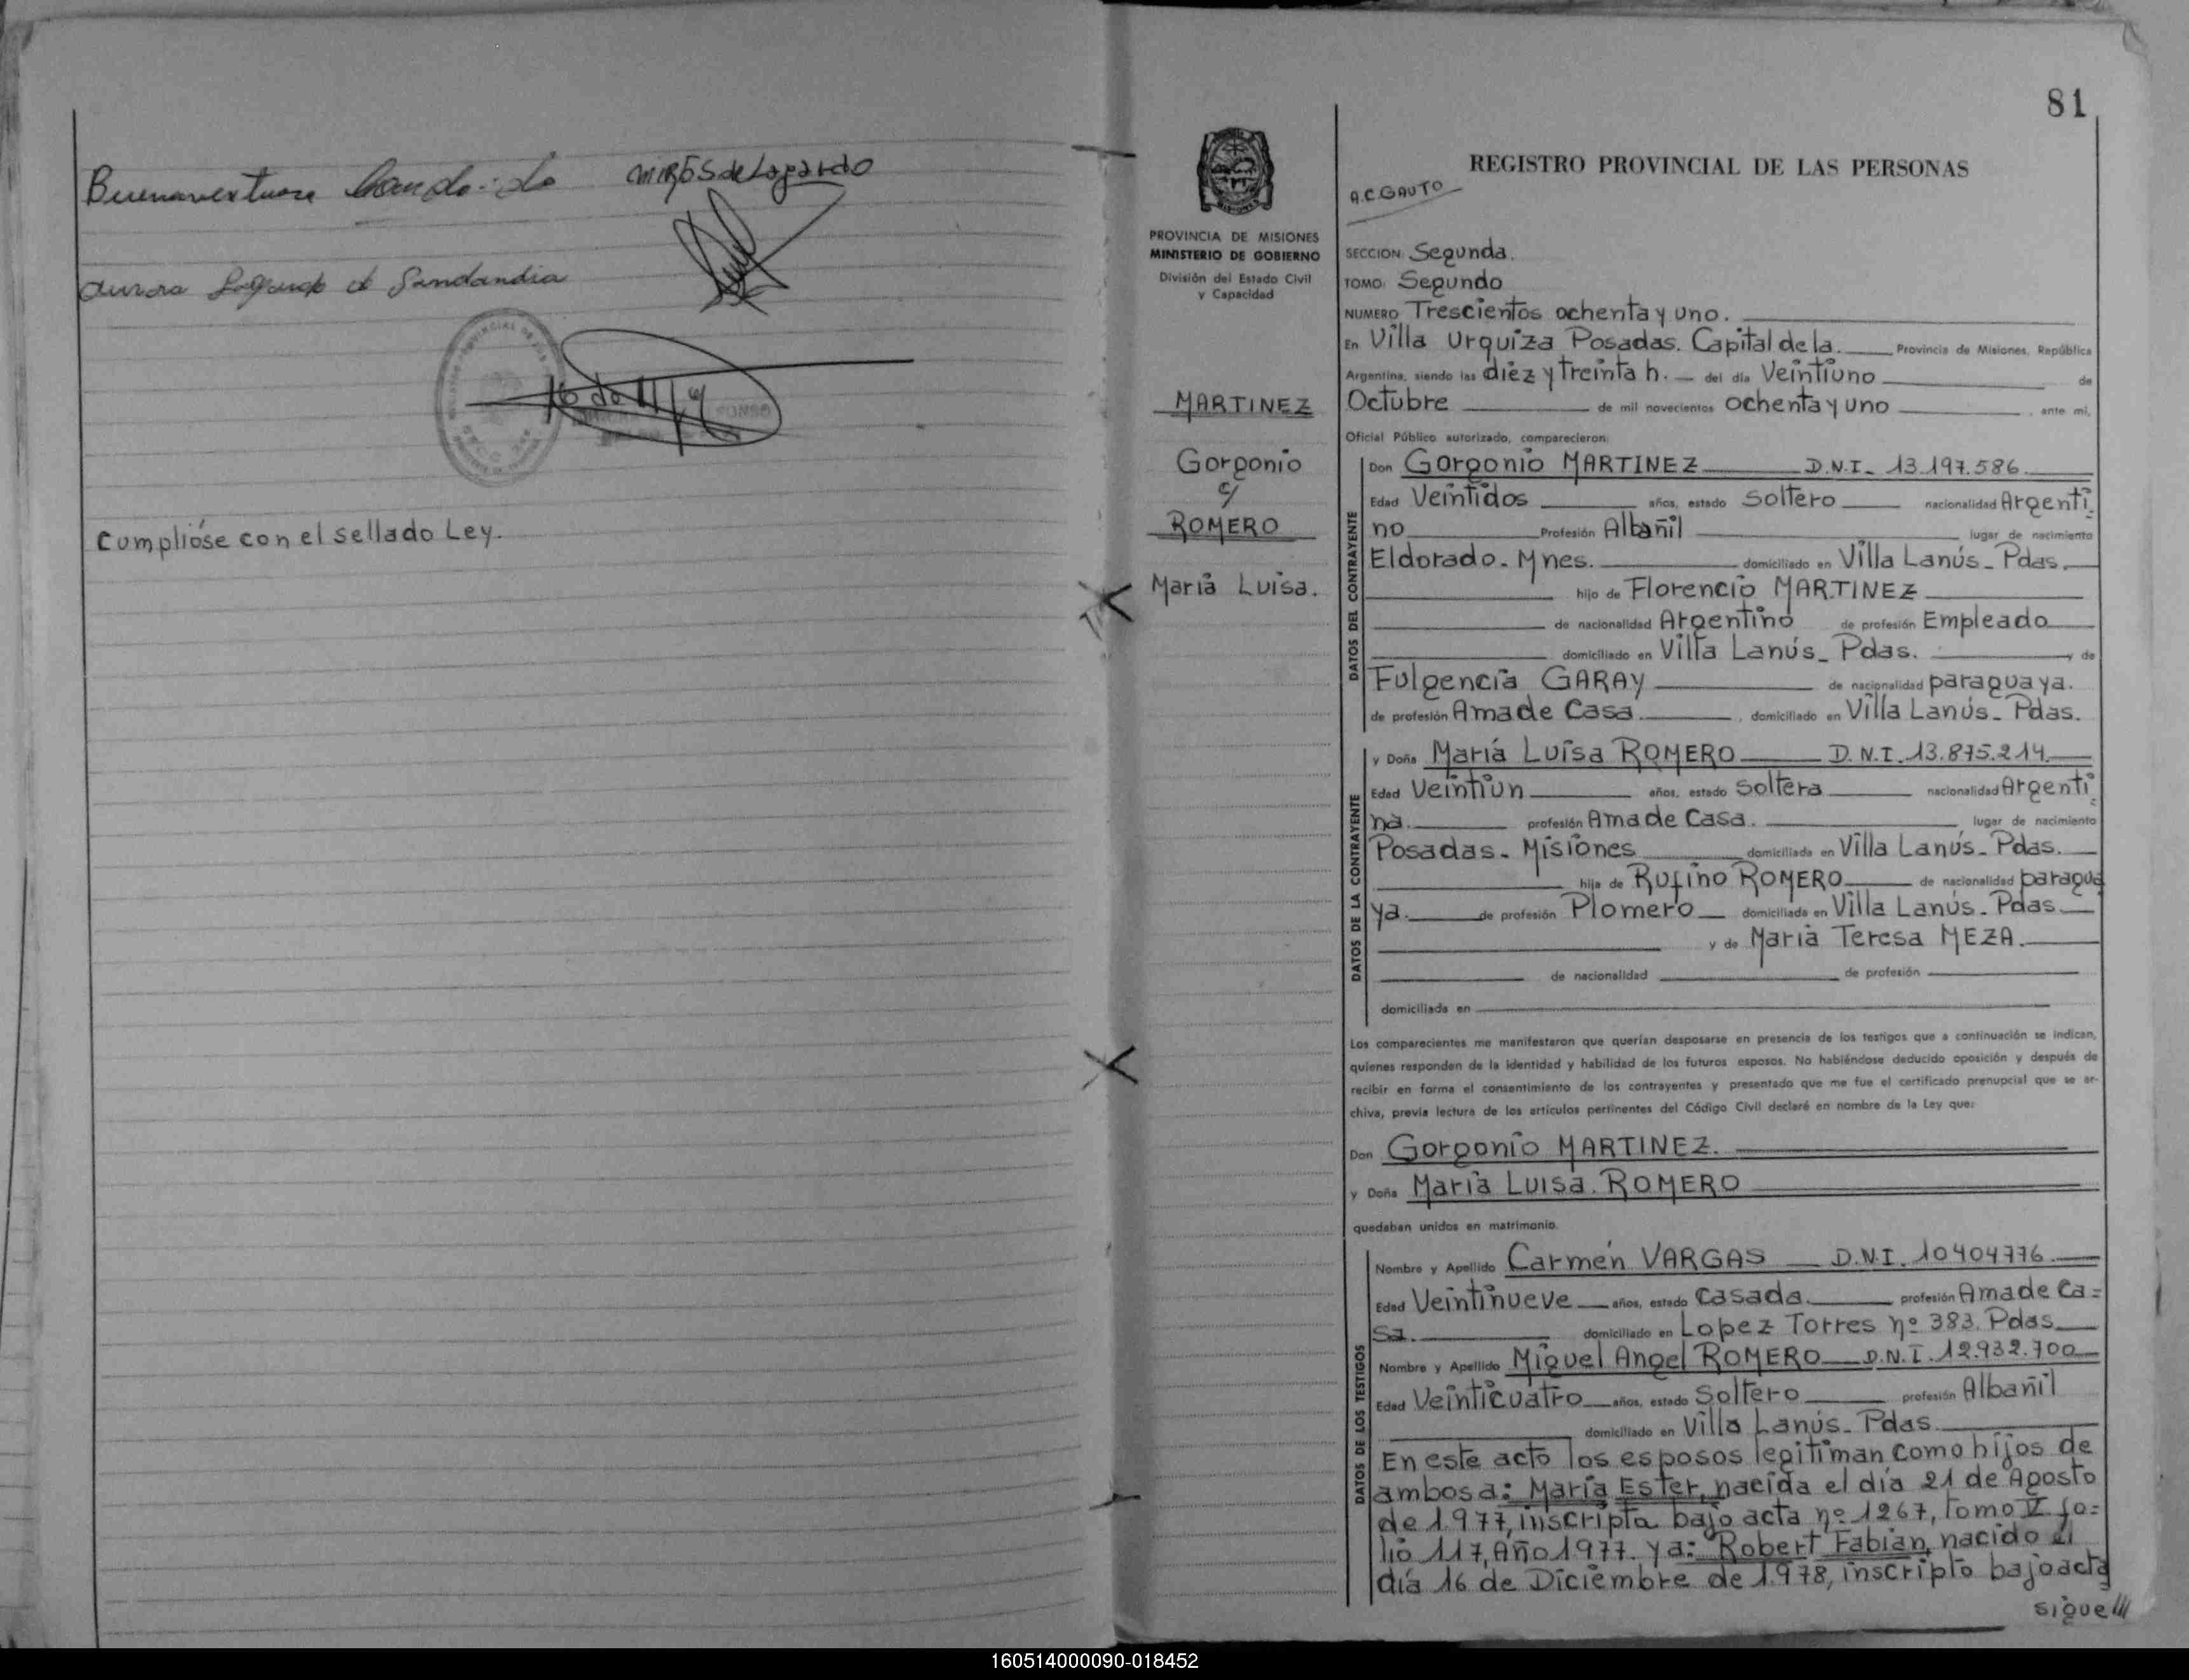 Buenaventura
MIRES de Lagardo
Aurora
Cumplióse con el sellado Ley.
81
REGISTRO PROVINCIAL DE LAS PERSONAS
A.C. GAUTO
PROVINCIA DE MISIONES
MINISTERIO DE GOBIERNO
División del Estado Civil
y Capacidad
MARTINEZ
Gorgonio
c/
ROMERO
Maria Luisa.
SECCION: Segunda.
TOMO: Segundo
NUMERO Trescientos ochenta y uno.
En Villa Urquiza Posadas. Capital de la. Provincia de Misiones, República
Argentina, siendo las diez y treinta h. del día Veintiuno de
Octubre de mil novecientos Ochenta y uno , ante mi,
Oficial Público autorizado, comparecieron:
DATOS DEL CONTRAYENTE
Don Gorgonio MARTINEZ D.N.I. 13.197.586
Edad Veintidos años, estado Soltero nacionalidad Argenti
no Profesión Albañil lugar de nacimiento
Eldorado. Mnes. domiciliado en Villa Lanús - Pdas.
hijo de Florencio MARTINEZ
de nacionalidad Argentino de profesión Empleado
domiciliado en Villa Lanús - Pdas. y de
Fulgencia GARAY de nacionalidad paraguaya.
de profesión Ama de Casa. , domiciliado en Villa Lanús - Pdas.
DATOS DE LA CONTRAYENTE
y Doña María Luisa ROMERO D.N.I. 13.875.214
Edad Veintiun años, estado Soltera nacionalidad Argenti
na. profesión Ama de Casa. lugar de nacimiento
Posadas - Misiones domiciliada en Villa Lanús - Pdas.
hija de Rufino ROMERO de nacionalidad paragua
ya. de profesión Plomero domiciliada en Villa Lanús - Pdas.
y de Maria Teresa MEZA.
de nacionalidad de profesión
domiciliada en
Los comparecientes me manifestaron que querían desposarse en presencia de los testigos que a continuación se indican,
quienes responden de la identidad y habilidad de los futuros esposos. No habiéndose deducido oposición y después de
recibir en forma el consentimiento de los contrayentes y presentado que me fue el certificado prenupcial que se ar-
chiva, previa lectura de los artículos pertinentes del Código Civil declaré en nombre de la Ley que:
Don Gorgonio MARTINEZ.
y Doña Maria Luisa. ROMERO
quedaban unidos en matrimonio.
DATOS DE LOS TESTIGOS
Nombre y Apellido Carmen VARGAS D.N.I. 10404776
Edad Veintinueve años, estado Casada. profesión Ama de Ca=
sa. domiciliado en Lopez Torres nº 383. Pdas.
Nombre y Apellido Miguel Angel ROMERO D.N.I. 12.932.700
Edad Veinticuatro años, estado Soltero profesión Albañil
domiciliado en Villa Lanús - Pdas.
En este acto los esposos legitiman como hijos de
ambos a: María Ester, nacida el día 21 de Agosto
de 1.977, inscripta bajo acta nº 1267, Tomo V fo=
lio 117, Año 1977. y a: Robert Fabian, nacido el
día 16 de Diciembre de 1.978, inscripto bajo acta
sigue///
160514000090-018452